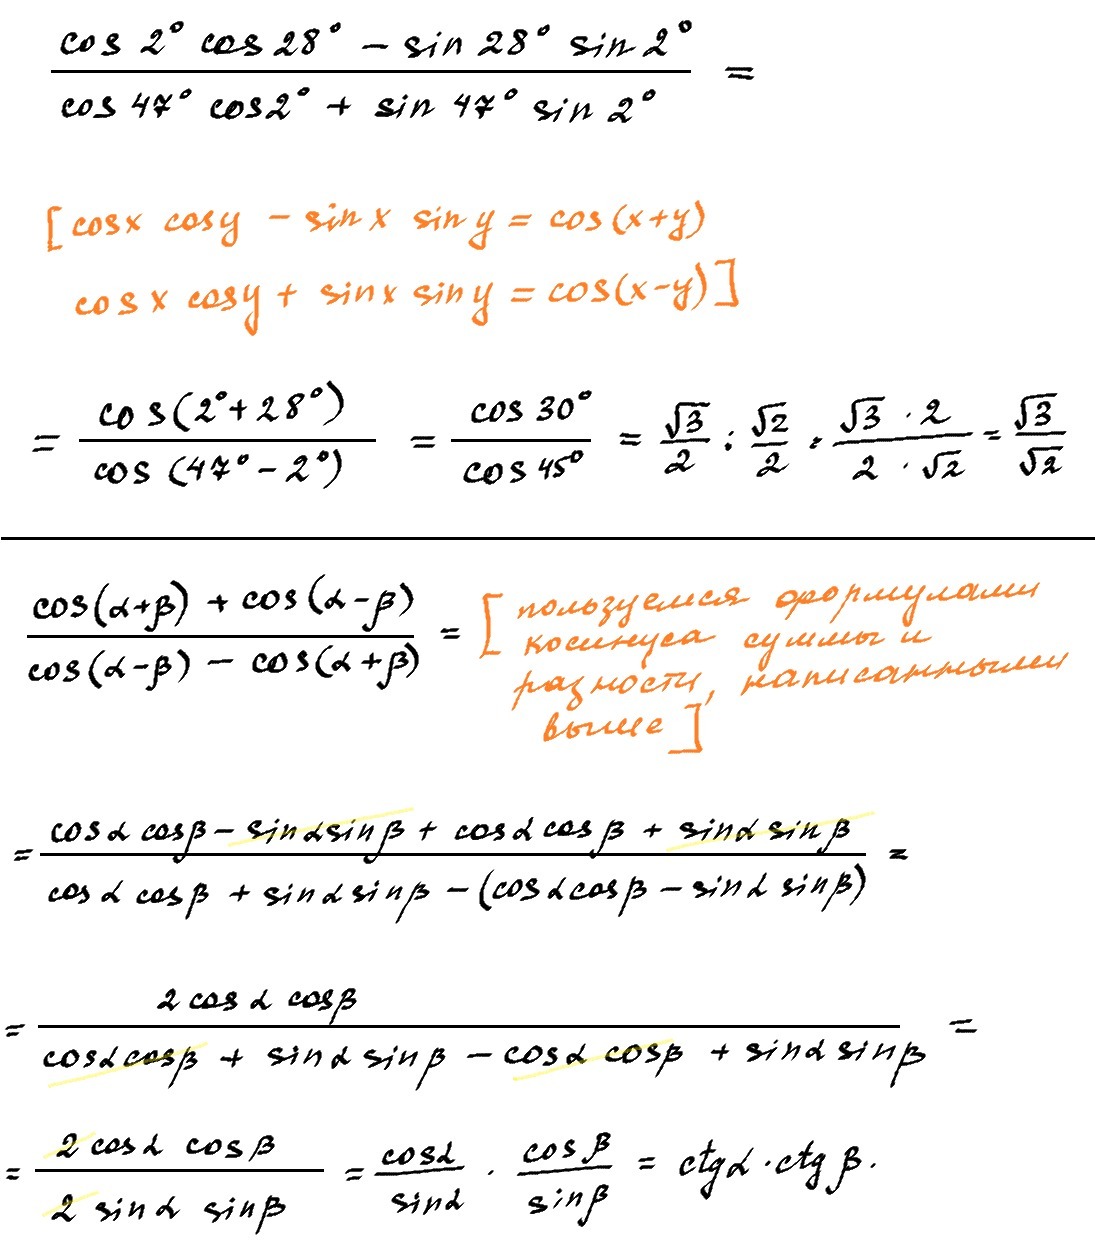 cos 2° cos 28° − sin 28° sin 2°
cos 47° cos 2° + sin 47° sin 2° =
[cosx cosy − sin x sin y = cos(x+y)
cos x cosy + sinx sin y = cos(x−y)]
= cos(2°+28°) / cos(47°−2°) = cos 30° / cos 45° = √3/2 : √2/2 = √3 · 2 / 2 · √2 = √3/√2
cos(α+β) + cos(α−β) / cos(α−β) − cos(α+β) = [пользуемся формулами
косинуса суммы и
разности, написанными
выше]
= cosα cosβ − sinα sinβ + cosα cosβ + sinα sinβ =
cosα cosβ + sinα sinβ − (cosα cosβ − sinα sinβ)
= 2 cosα cosβ =
cosα cosβ + sinα sinβ − cosα cosβ + sinα sinβ
= 2 cosα cosβ / 2 sinα sinβ = cosα / sinα · cosβ / sinβ = ctgα · ctgβ.